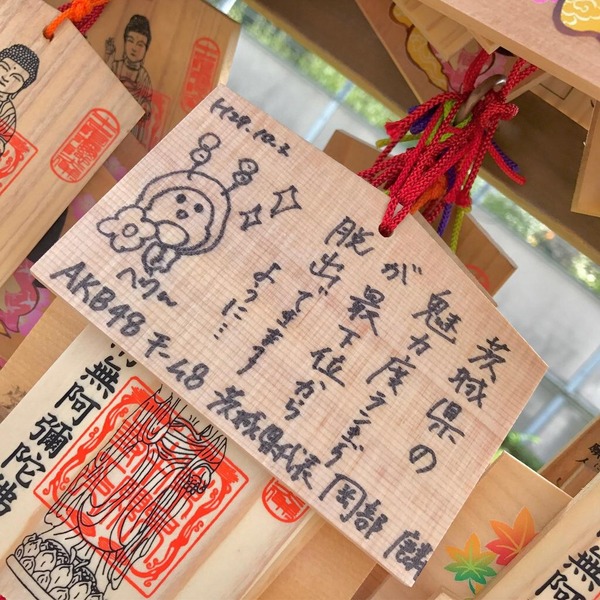 茨城県の
魅力度ランキング
が最下位から
脱出できます
ように…
H29.10.2
へりん
AKB48 チーム8 茨城県代表 岡部 麟
無阿彌陀佛